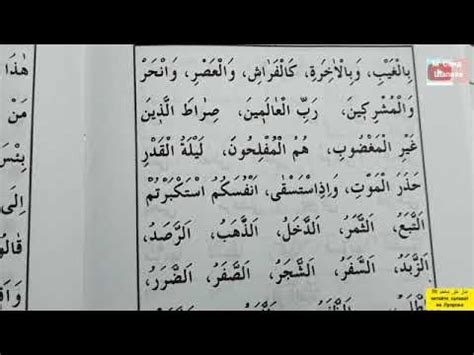 بِالْغَيْبِ، وَبِالْاٰخِرَةِ، كَالْفَرَاشِ، وَالْعَصْرِ، وَانْحَرْ
وَالْمُشْرِكِينَ، رَبِّ الْعَالَمِينَ، صِرَاطَ الَّذِينَ
غَيْرِ الْمَغْضُوبِ، هُمُ الْمُفْلِحُونَ، لَيْلَةُ الْقَدْرِ
حَذَرَ الْمَوْتِ، وَاِذِاسْتَسْقٰى، اَنْفُسَكُمُ اسْتَكْبَرْتُمْ
اَلتَّبَعُ، اَلثَّمَرُ، اَلدَّخَلُ، اَلذَّهَبُ، اَلرَّصَدُ،
اَلزَّبَدُ، اَلسَّفَرُ، اَلشَّجَرُ، اَلصَّفَرُ، اَلضَّرَرُ،
هٰذَا
مَنْ
بِئْسَ
اِلَى
قَالُو